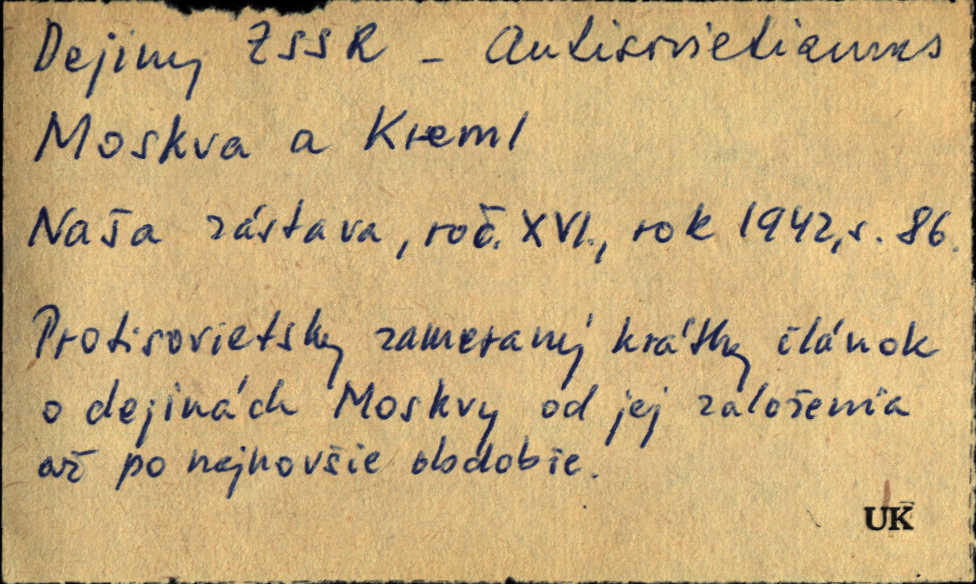 Dejiny ZSSR - Antisovietizmus
Moskva a Kreml
Naša zástava, roč. XVI., rok 1942, s. 86.
Protisovietsky zameraný krátky článok
o dejinách Moskvy od jej založenia
až po najnovšie obdobie.
UK